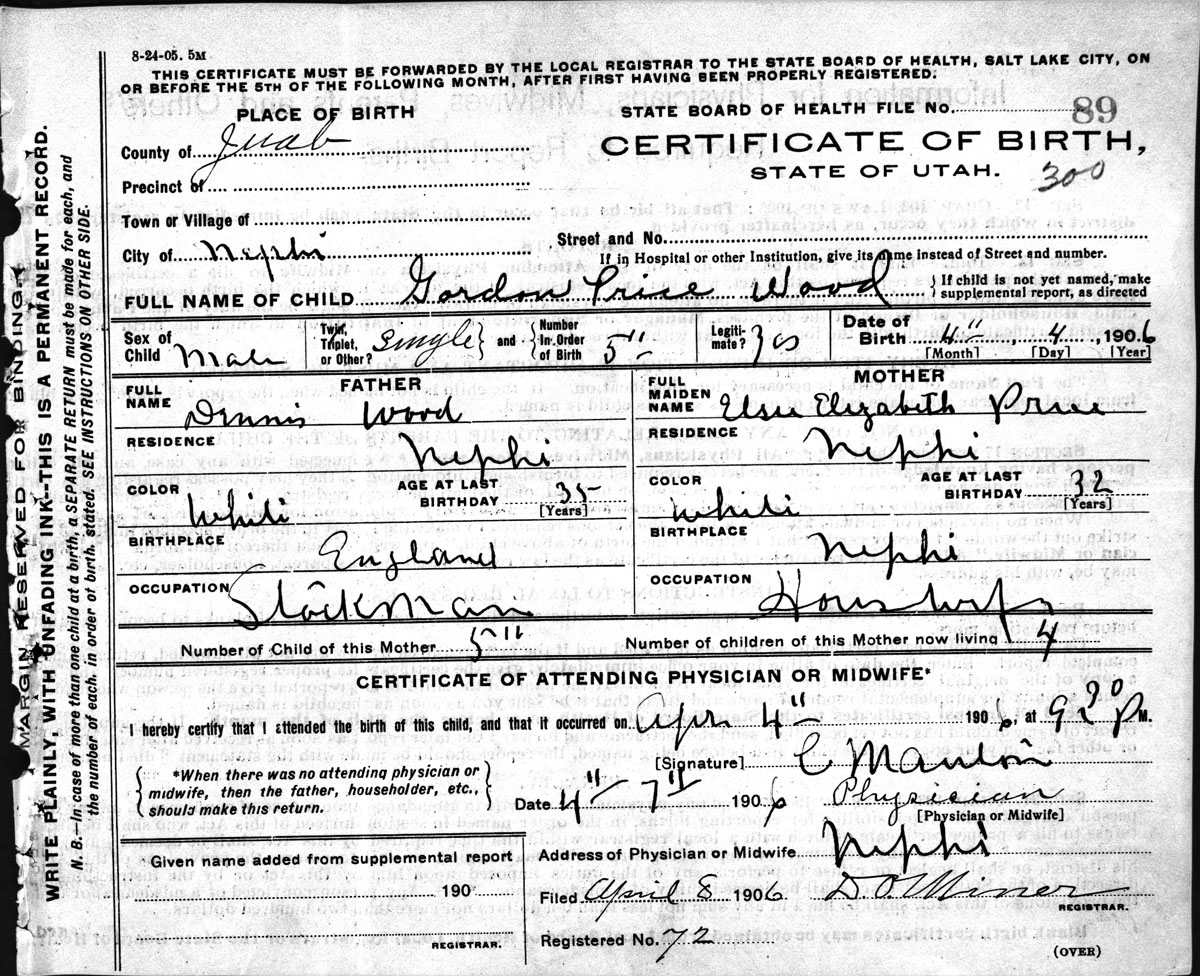 8-24-05. 5M
THIS CERTIFICATE MUST BE FORWARDED BY THE LOCAL REGISTRAR TO THE STATE BOARD OF HEALTH, SALT LAKE CITY, ON
OR BEFORE THE 5TH OF THE FOLLOWING MONTH, AFTER FIRST HAVING BEEN PROPERLY REGISTERED.
MARGIN RESERVED FOR BINDING
WRITE PLAINLY, WITH UNFADING INK--THIS IS A PERMANENT RECORD.
N. B.--In case of more than one child at a birth, a SEPARATE RETURN must be made for each, and
the number of each, in order of birth, stated. SEE INSTRUCTIONS ON OTHER SIDE.
PLACE OF BIRTH
County of Juab
Precinct of
Town or Village of
City of Nephi
STATE BOARD OF HEALTH FILE NO. 89
CERTIFICATE OF BIRTH,
STATE OF UTAH.
300
Street and No.
If in Hospital or other Institution, give its name instead of Street and number.
FULL NAME OF CHILD Gordon Price Wood { If child is not yet named, make
supplemental report, as directed
Sex of Child Male
Twin, Triplet, or Other? Single } and { Number In Order of Birth 5"
Legiti- mate? Yes
Date of Birth 4", 4, 1906
[Month] [Day] [Year]
FATHER
FULL NAME Dennis Wood
RESIDENCE Nephi
COLOR White AGE AT LAST BIRTHDAY 35 [Years]
BIRTHPLACE England
OCCUPATION Stockman
MOTHER
FULL MAIDEN NAME Elsie Elizabeth Price
RESIDENCE Nephi
COLOR White AGE AT LAST BIRTHDAY 32 [Years]
BIRTHPLACE Nephi
OCCUPATION Housewife
Number of Child of this Mother 5" Number of children of this Mother now living 4
CERTIFICATE OF ATTENDING PHYSICIAN OR MIDWIFE*
I hereby certify that I attended the birth of this child, and that it occurred on Apr 4" 1906, at 9 20 P M.
{ *When there was no attending physician or
midwife, then the father, householder, etc.,
should make this return. }
[Signature] C
Date 4" 7" 1906 Physician
[Physician or Midwife]
Given name added from supplemental report
190
REGISTRAR.
Address of Physician or Midwife Nephi
Filed April 8 1906 Miner
REGISTRAR.
Registered No. 72
(OVER)